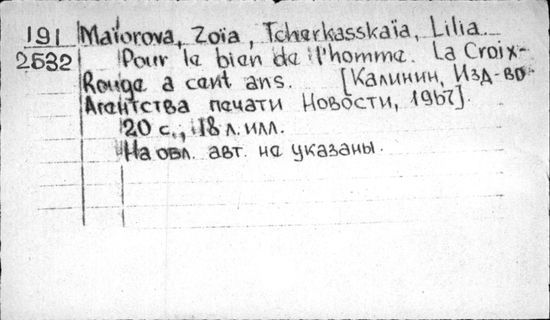 191 Maiorova, Zoïa, Tcherkasskaïa, Lilia.
2532 Pour le bien de l'homme. La Croix-
Rouge a cent ans. [Калинин, Изд-во
Агентства печати Новости, 1967].
20 с., 18 л. илл.
На обл. авт. не указаны.